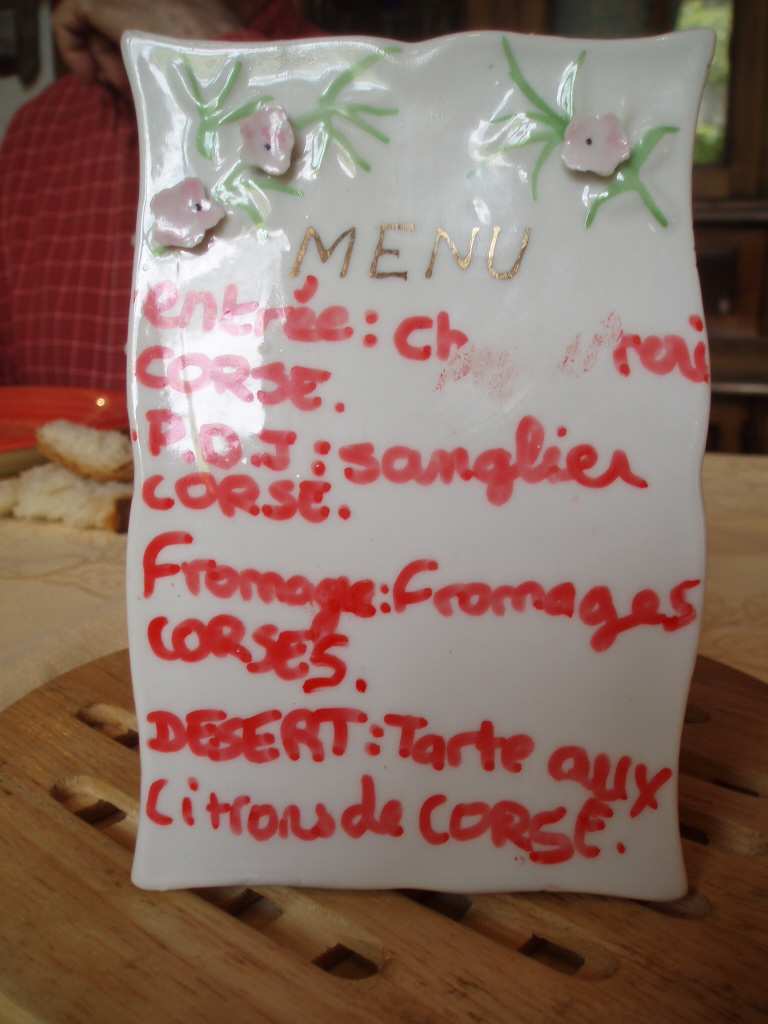 MENU
entrée:
CORSE.
P.D.J : sanglier
CORSE.
Fromage: Fromages
CORSES.
DESERT: Tarte aux
Citrons de CORSE.